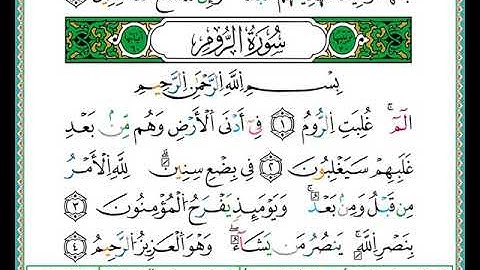 سُورَةُ الرُّومِ
بِسْمِ اللَّهِ الرَّحْمَٰنِ الرَّحِيمِ
الٓمٓ ۚ غُلِبَتِ الرُّومُ ١ فِىٓ أَدْنَى الْأَرْضِ وَهُم مِّنۢ بَعْدِ
غَلَبِهِمْ سَيَغْلِبُونَ ٢ فِى بِضْعِ سِنِينَ ۗ لِلَّهِ الْأَمْرُ
مِن قَبْلُ وَمِنۢ بَعْدُ ۚ وَيَوْمَئِذٍ يَفْرَحُ الْمُؤْمِنُونَ ٣
بِنَصْرِ اللَّهِ ۚ يَنصُرُ مَن يَشَآءُ ۖ وَهُوَ الْعَزِيزُ الرَّحِيمُ ٤